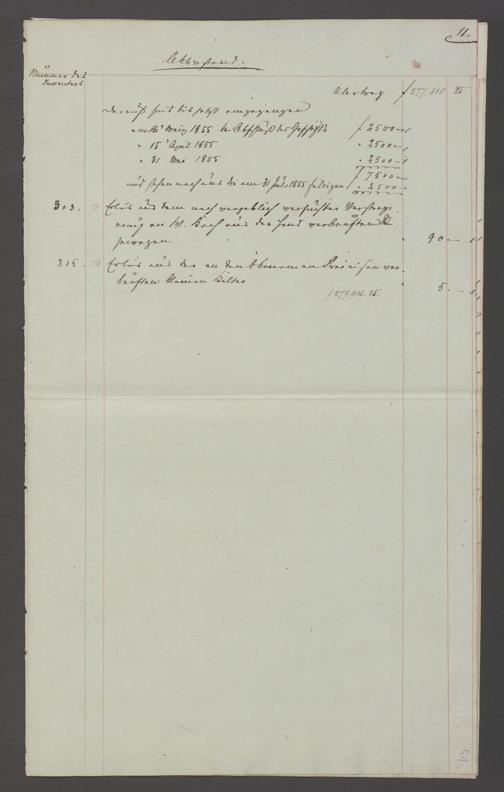 11.
Aktivstand.
Nummer des
Inventars
Übertrag f 277,810 25
Darauf sind bis jetzt eingegangen
am 16 März 1855 bei Abschluß des Geschäfts f 2500
" 15 April 1855 " 2500
" 31 Mai 1855 " 2500
f 7500
und stehen noch aus die am 31 Juli 1855 fälligen " 2500
303. Erlös aus dem nach vergeblich versuchter Versteige-
rung an Koch aus der Hand verkauften
wagen 90
315. Erlös aus der an den verk
kauften kleinen Bilder 5.
f 277,905.25.